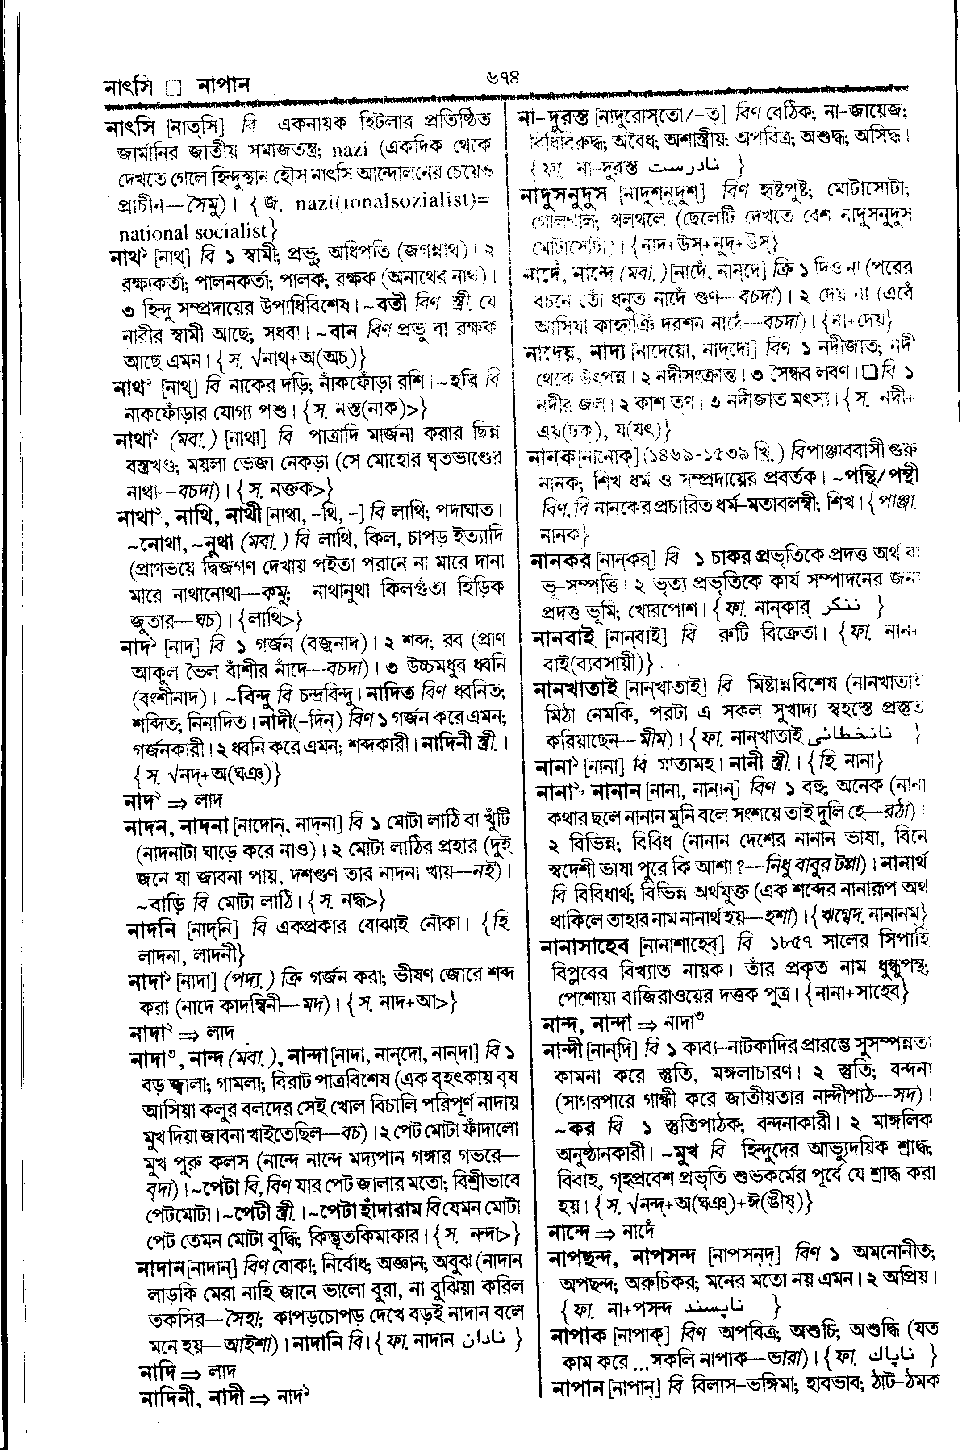 নাৎসি □ নাপান
৬৭৪
নাৎসি [নাত্‌সি] বি একনায়ক হিটলার প্রতিষ্ঠিত
জার্মানির জাতীয় সমাজতন্ত্র; nazi (একদিক থেকে
দেখতে গেলে হিন্দুস্থান হৌস নাৎসি আন্দোলনের চেয়েও
প্রাচীন—সৈমু)। {জ. nazi(ionalsozialist)=
national socialist}
নাথ১ [নাথ্] বি ১ স্বামী; প্রভু অধিপতি (জগন্নাথ)। ২
রক্ষাকর্তা; পালনকর্তা; পালক; রক্ষক (অনাথের নাথ)।
৩ হিন্দু সম্প্রদায়ের উপাধিবিশেষ। ~বতী বিণ স্ত্রী. যে
নারীর স্বামী আছে; সধবা। ~বান বিণ প্রভু বা রক্ষক
আছে এমন। {স. √নাথ্+অ(অচ্)}
নাথ২ [নাথ্] বি নাকের দড়ি; নাঁকফোঁড়া রশি। ~হরি বি
নাকফোঁড়ার যোগ্য পশু। {স. নস্ত(নাক)>}
নাথা১ (মবা.) [নাথা] বি পাত্রাদি মার্জনা করার ছিন্ন
বস্ত্রখণ্ড; ময়লা ভেজা নেকড়া (সে মোহোর ঘৃতভাণ্ডের
নাথা—বচদা)। {স. নক্তক>}
নাথা২, নাথি, নাথী [নাথা, –থি, –] বি লাথি; পদাঘাত।
~নোথা, ~নুথা (মবা.) বি লাথি, কিল, চাপড় ইত্যাদি
(প্রাণভয়ে দ্বিজগণ দেখায় পইতা পরানে না মারে দানা
মারে নাথানোথা—কমু; নাথানুথা কিলগুঁতা হিড়িক
জুতার—ঘচ)। {লাথি>}
নাদ১ [নাদ্] বি ১ গর্জন (বজ্রনাদ)। ২ শব্দ; রব (প্রাণ
আকুল ভৈল বাঁশীর নাঁদে—বচদা)। ৩ উচ্চমধুর ধ্বনি
(বংশীনাদ)। ~বিন্দু বি চন্দ্রবিন্দু। নাদিত বিণ ধ্বনিত;
শব্দিত; নিনাদিত। নাদী(–দিন্) বিণ ১ গর্জন করে এমন;
গর্জনকারী। ২ ধ্বনি করে এমন; শব্দকারী। নাদিনী স্ত্রী.।
{স. √নদ্+অ(ঘঞ্)}
নাদ২ ⇒ লাদ
নাদন, নাদনা [নাদোন্, নাদ্‌না] বি ১ মোটা লাঠি বা খুঁটি
(নাদনাটা ঘাড়ে করে নাও)। ২ মোটা লাঠির প্রহার (দুই
জনে যা জাবনা পায়, দশগুণ তার নাদনা খায়—নই)।
~বাড়ি বি মোটা লাঠি। {স. নদ্ধ>}
নাদনি [নাদ্‌নি] বি একপ্রকার বোঝাই নৌকা। {হি
লাদনা, লাদনী}
নাদা১ [নাদা] (পদ্য.) ক্রি গর্জন করা; ভীষণ জোরে শব্দ
করা (নাদে কাদম্বিনী—মদ)। {স. নাদ+আ>}
নাদা২ ⇒ লাদ
নাদা৩, নান্দ (মবা.), নান্দা [নাদা, নান্‌দো, নান্‌দা] বি ১
বড় জ্বালা; গামলা; বিরাট পাত্রবিশেষ (এক বৃহৎকায় বৃষ
আসিয়া কলুর বলদের সেই খোল বিচালি পরিপূর্ণ নাদায়
মুখ দিয়া জাবনা খাইতেছিল—বচ)। ২ পেট মোটা ফাঁদালো
মুখ পুরু কলস (নান্দে নান্দে মদ্যপান গঙ্গার গভরে—
বৃদা)। ~পেটা বি, বিণ যার পেট জালার মতো; বিশ্রীভাবে
পেটমোটা। ~পেটী স্ত্রী.। ~পেটা হাঁদারাম বি যেমন মোটা
পেট তেমন মোটা বুদ্ধি; কিম্ভূতকিমাকার। {স. নন্দা>}
নাদান [নাদান্] বিণ বোকা; নির্বোধ; অজ্ঞান; অবুঝ (নাদান
লাড়কি মেরা নাহি জানে ভালো বুরা, না বুঝিয়া করিল
তকসির—সৈহা; কাপড়চোপড় দেখে বড়ই নাদান বলে
মনে হয়—আইশা)। নাদানি বি। {ফা. নাদান نادان}
নাদি ⇒ লাদ
নাদিনী, নাদী ⇒ নাদ১
না-দুরস্ত [নাদুরোস্‌তো/–ত্] বিণ বেঠিক; না-জায়েজ;
বিধিবিরুদ্ধ; অবৈধ; অশাস্ত্রীয়; অপবিত্র; অশুদ্ধ; অসিদ্ধ।
{ফা. না-দুরস্ত نادرست}
নাদুসনুদুস [নাদুশ্‌নুদুশ্] বিণ হৃষ্টপুষ্ট; মোটাসোটা;
গোলগাল; থলথলে (ছেলেটি দেখতে বেশ নাদুসনুদুস
মোটাসোটা)। {নাদ+উস+নুদ+উস}
নাদেঁ, নান্দে (মবা.) [নাদেঁ, নান্‌দে] ক্রি ১ দিও না (পরের
বচনে তোঁ ধনুত নাদেঁ গুণ—বচদা)। ২ দেয় না (এবেঁ
আসিয়া কাহ্নাঞিঁ দরশন নাদেঁ—বচদা)। {না+দেয়}
নাদেয়, নাদ্য [নাদেয়ো, নাদ্‌দো] বিণ ১ নদীজাত; নদী
থেকে উৎপন্ন। ২ নদীসংক্রান্ত। ৩ সৈন্ধব লবণ। □ বি ১
নদীর জল। ২ কাশ তৃণ। ৩ নদীজাত মৎস্য। {স. নদী+
এয়(ঢক), য(যৎ)}
নানক [নানোক্] (১৪৬৯-১৫৩৯ খ্রি.) বি পাঞ্জাববাসী গুরু
নানক; শিখ ধর্ম ও সম্প্রদায়ের প্রবর্তক। ~পন্থি/পন্থী
বিণ, বি নানকের প্রচারিত ধর্ম-মতাবলম্বী; শিখ। {পাঞ্জা.
নানক}
নানকর [নান্‌কর্] বি ১ চাকর প্রভৃতিকে প্রদত্ত অর্থ বা
ভূ-সম্পত্তি। ২ ভৃত্য প্রভৃতিকে কার্য সম্পাদনের জন্য
প্রদত্ত ভূমি; খোরপোশ। {ফা. নান্‌কার ننکر}
নানবাই [নান্‌বাই] বি রুটি বিক্রেতা। {ফা. নান-
বাই(ব্যবসায়ী)}
নানখাতাই [নান্‌খাতাই] বি মিষ্টান্নবিশেষ (নানখাতাই
মিঠা নেমকি, পরটা এ সকল সুখাদ্য স্বহস্তে প্রস্তুত
করিয়াছেন—মীম)। {ফা. নান্‌খাতাই نانخطائی}
নানা১ [নানা] বি মাতামহ। নানী স্ত্রী.। {হি. নানা}
নানা২, নানান [নানা, নানান্] বিণ ১ বহু; অনেক (নানা
কথার ছলে নানান মুনি বলে সংশয়ে তাই দুলি হে—রঠা)।
২ বিভিন্ন; বিবিধ (নানান দেশের নানান ভাষা, বিনে
স্বদেশী ভাষা পুরে কি আশা?—নিধু বাবুর টপ্পা)। নানার্থ
বি বিবিধার্থ; বিভিন্ন অর্থযুক্ত (এক শব্দের নানারূপ অর্থ
থাকিলে তাহার নাম নানার্থ হয়—হশা)। {ঋগ্বেদ. নানানম}
নানাসাহেব [নানাশাহেব্] বি ১৮৫৭ সালের সিপাহি
বিপ্লবের বিখ্যাত নায়ক। তাঁর প্রকৃত নাম ধুন্ধুপন্থ;
পেশোয়া বাজিরাওয়ের দত্তক পুত্র। {নানা+সাহেব}
নান্দ, নান্দা ⇒ নাদা৩
নান্দী [নান্‌দি] বি ১ কাব্য-নাটকাদির প্রারম্ভে সুসম্পন্নতা
কামনা করে স্তুতি, মঙ্গলাচারণ। ২ স্তুতি; বন্দনা
(সাগরপারে গান্ধী করে জাতীয়তার নান্দীপাঠ—সদ)।
~কর বি ১ স্তুতিপাঠক; বন্দনাকারী। ২ মাঙ্গলিক
অনুষ্ঠানকারী। ~মুখ বি হিন্দুদের আভ্যুদয়িক শ্রাদ্ধ;
বিবাহ, গৃহপ্রবেশ প্রভৃতি শুভকর্মের পূর্বে যে শ্রাদ্ধ করা
হয়। {স. √নন্দ্+অ(ঘঞ্)+ঈ(ঙীষ্)}
নান্দে ⇒ নাদেঁ
নাপছন্দ, নাপসন্দ [নাপসন্‌দ্] বিণ ১ অমনোনীত;
অপছন্দ; অরুচিকর; মনের মতো নয় এমন। ২ অপ্রিয়।
{ফা. না+পসন্দ ناپسند}
নাপাক [নাপাক্] বিণ অপবিত্র; অশুচি; অশুদ্ধি (যত
কাম করে...সকলি নাপাক—ভারা)। {ফা. ناپاك}
নাপান [নাপান্] বি বিলাস-ভঙ্গিমা; হাবভাব; ঠাট-ঠমক